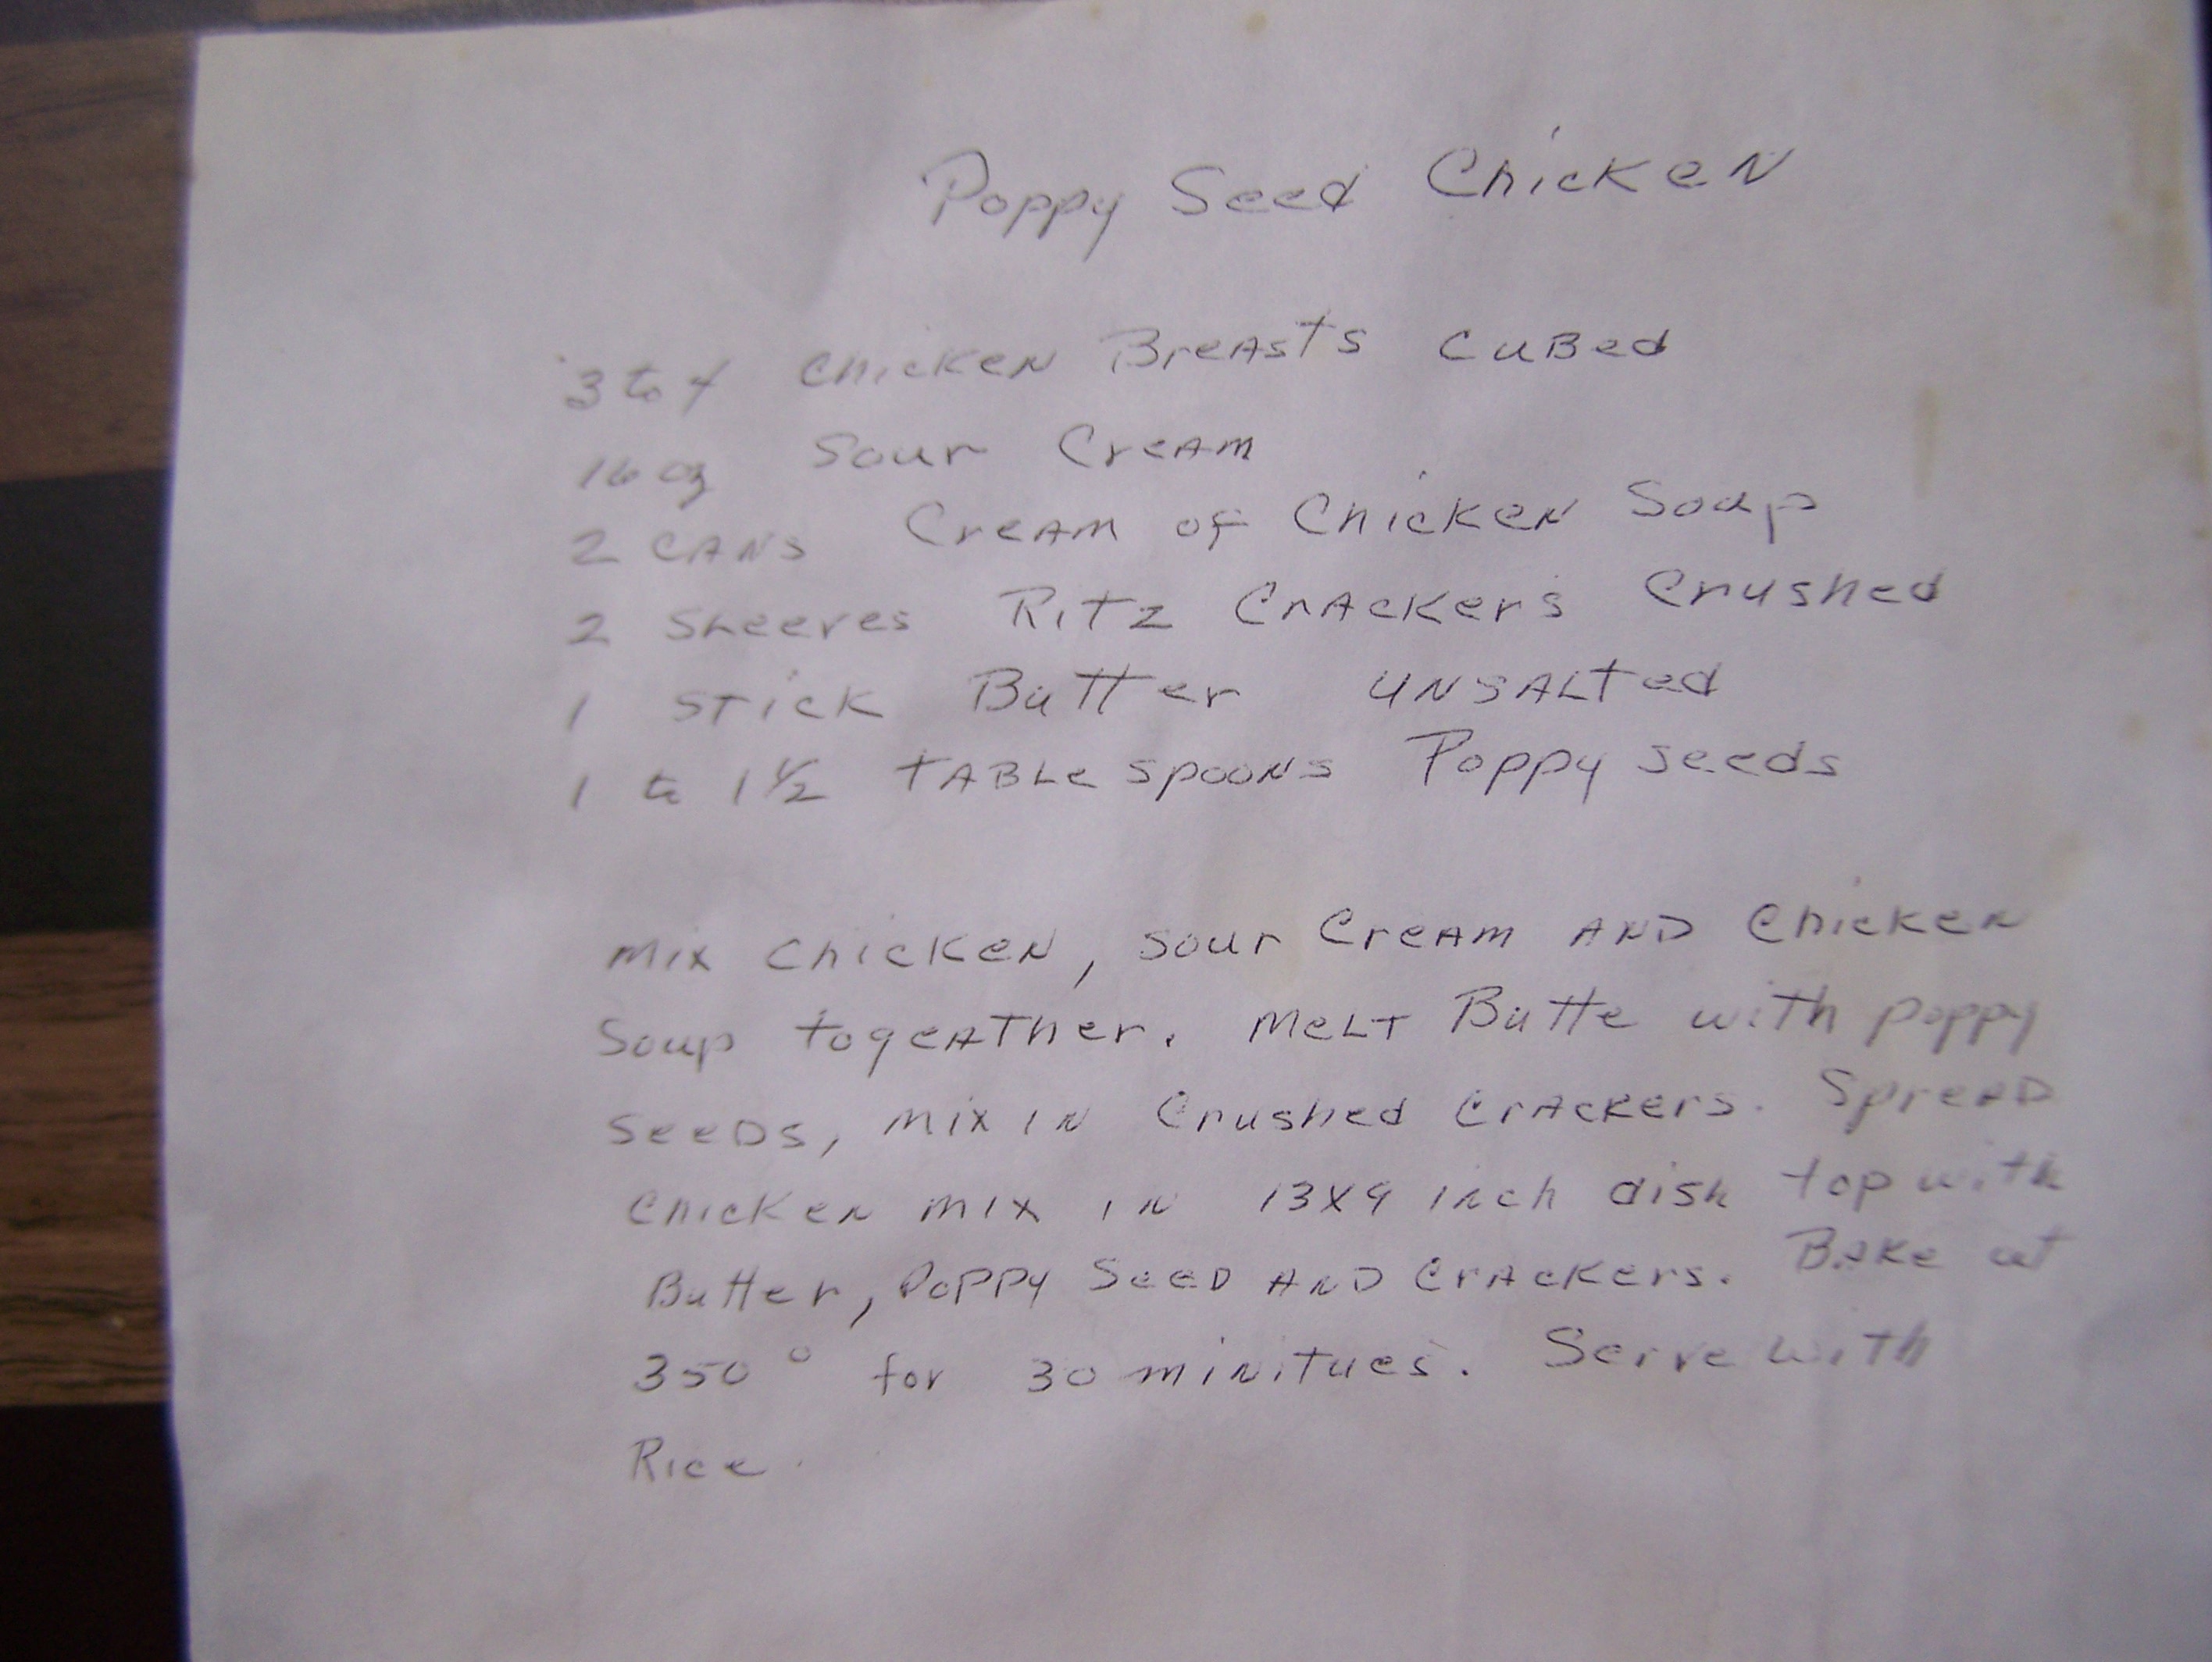 Poppy Seed Chicken
3 to 4 Chicken Breasts cubed
16 oz Sour Cream
2 cans Cream of Chicken Soup
2 Sleeves Ritz Crackers Crushed
1 Stick Butter unsalted
1 to 1 1/2 tablespoons Poppy seeds
Mix Chicken, sour Cream and Chicken
Soup togeather. Melt Butte with poppy
seeds, mix in Crushed Crackers. Spread
Chicken mix in 13x9 inch dish top with
Butter, Poppy Seed and Crackers. Bake at
350° for 30 minitues. Serve with
Rice.